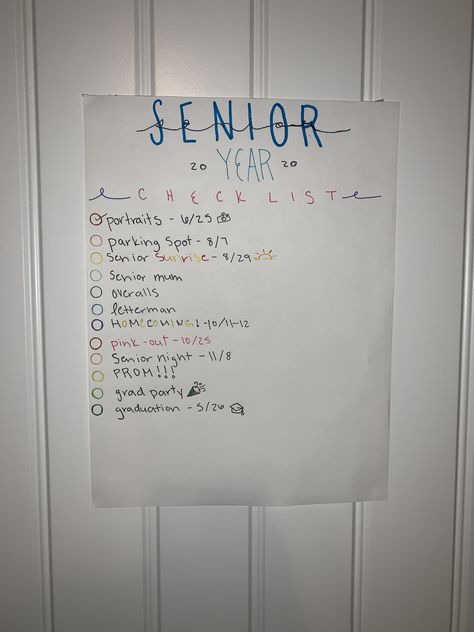 SENIOR
20 YEAR 20
CHECKLIST
portraits - 6/25
parking spot - 8/7
Senior Sunrise - 8/29
Senior mum
overalls
letterman
HOMECOMING! - 10/11-12
pink-out - 10/25
Senior night - 11/8
PROM!!!
grad party
graduation - 5/26